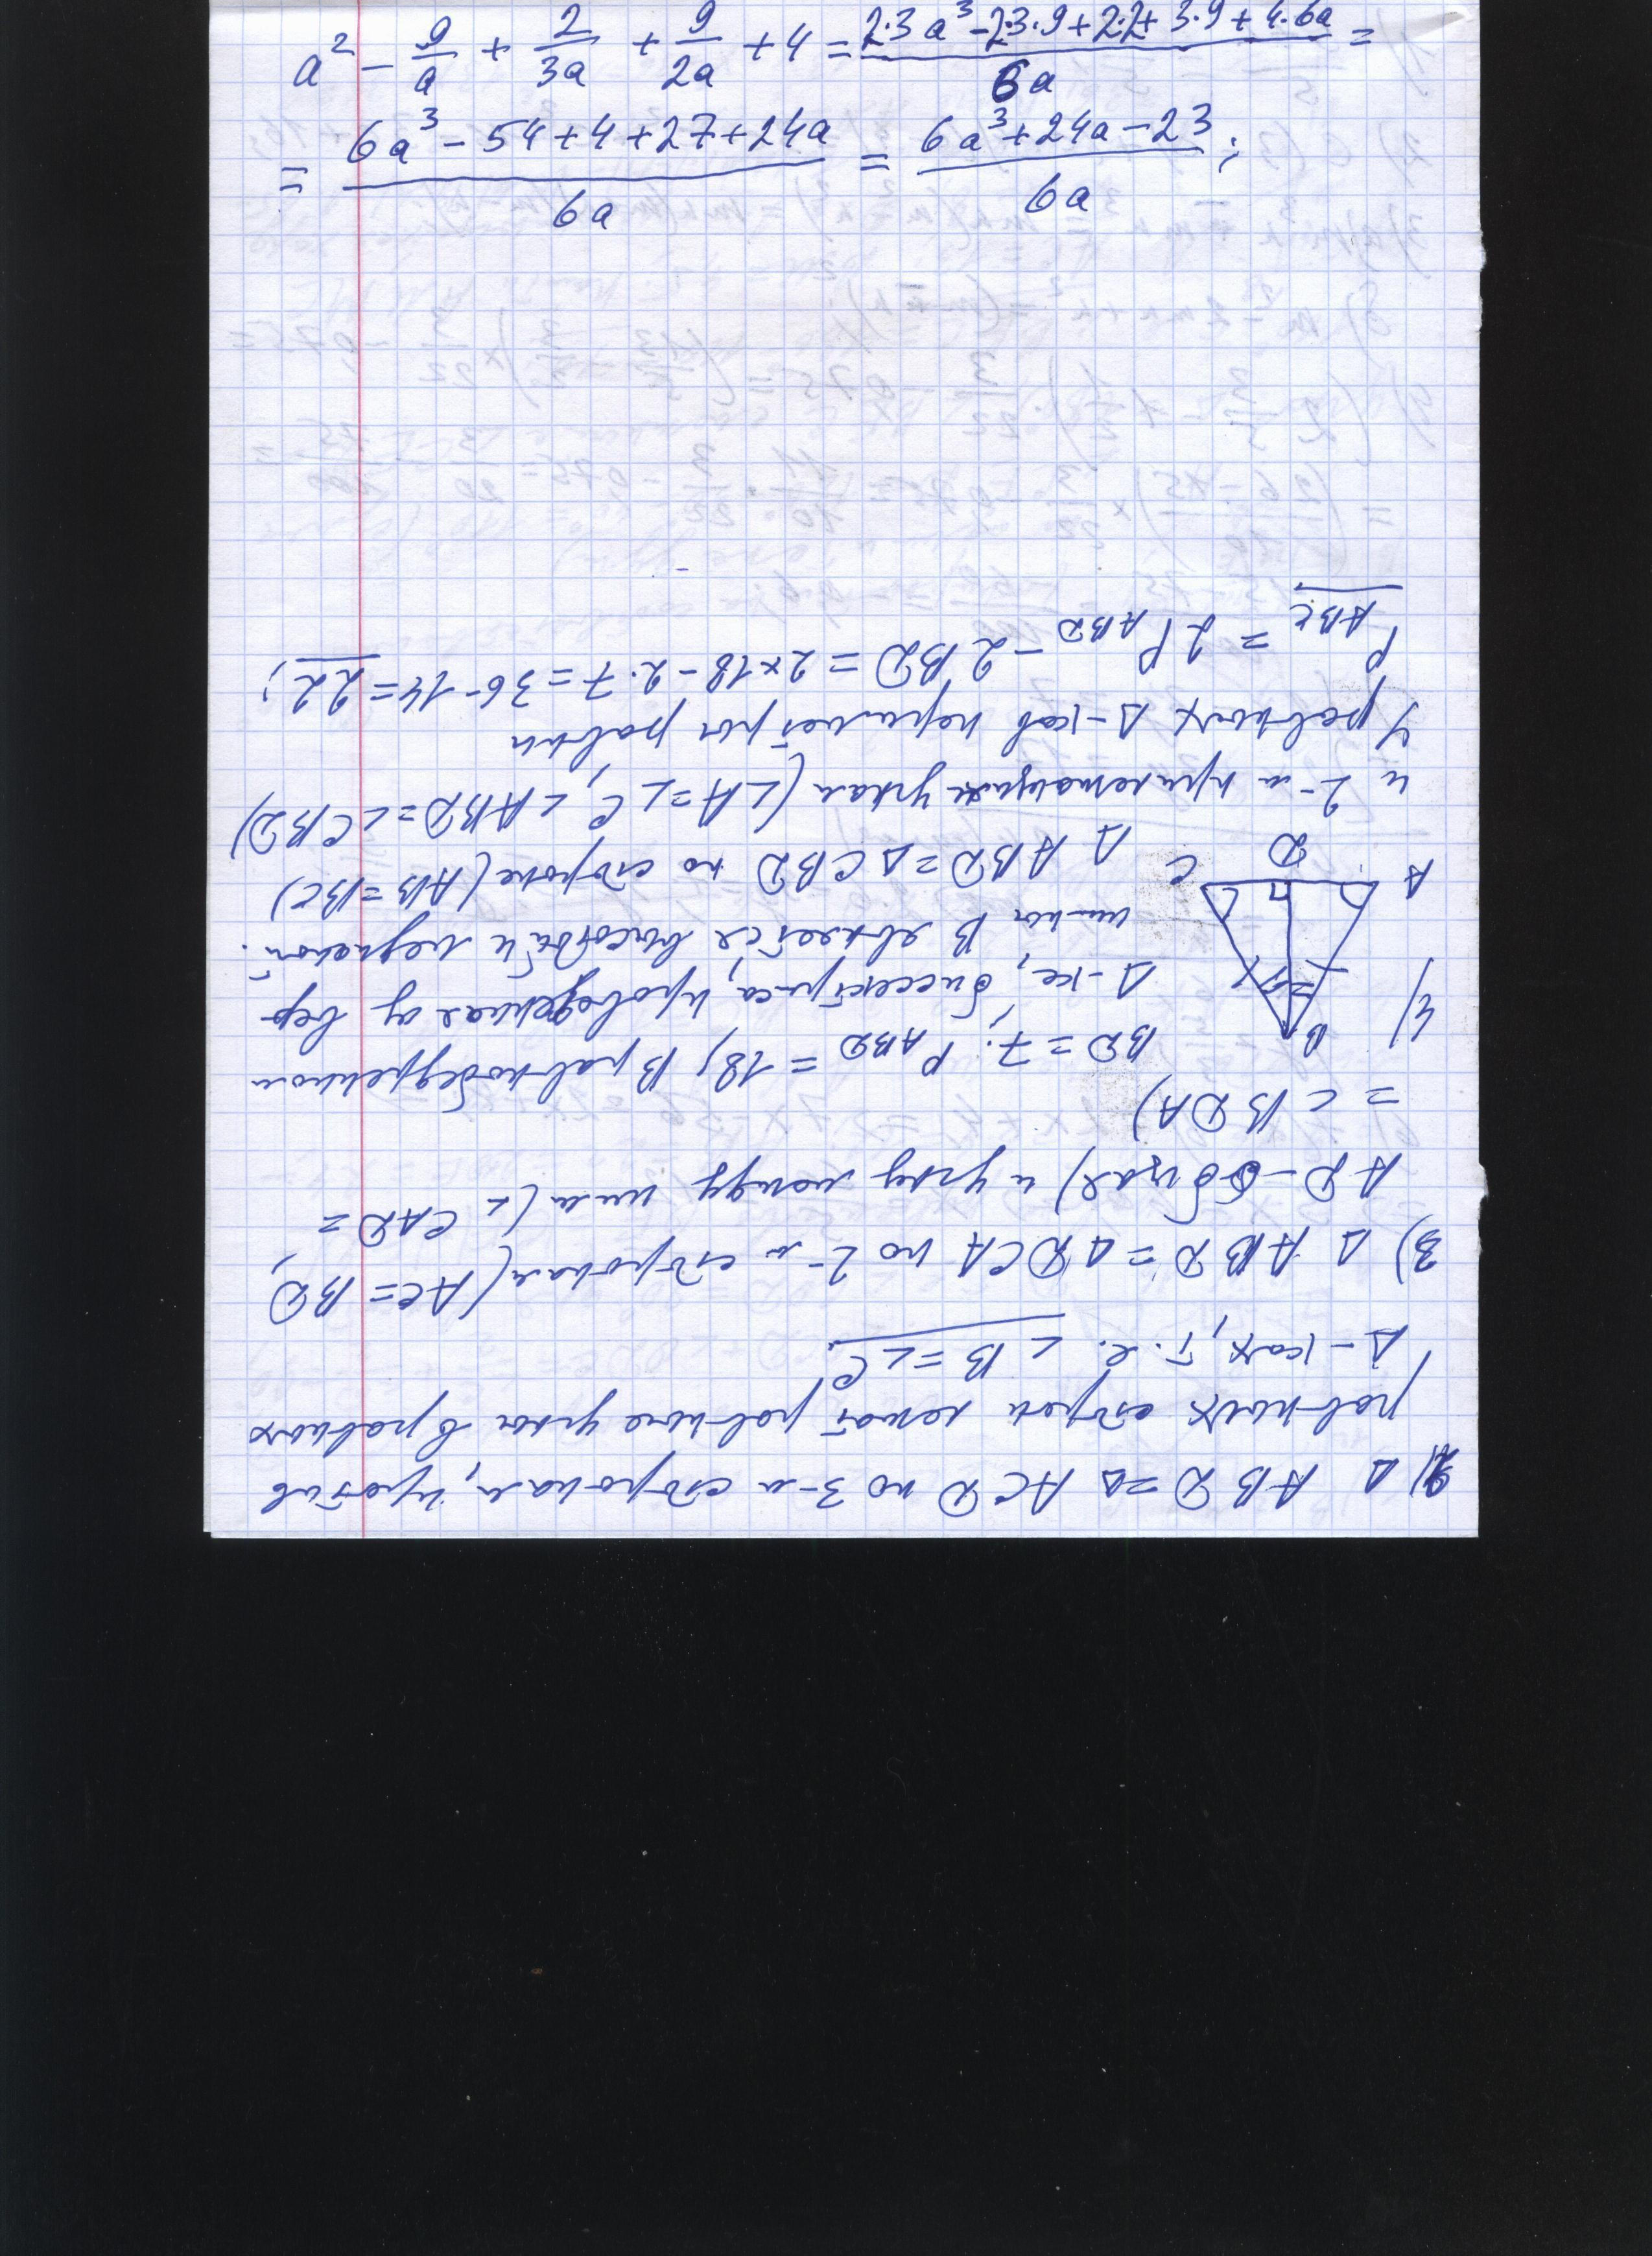 a² - 9/a + 2/3a + 9/2a + 4 = (2·3a³ - 2·3·9 + 2·2 + 3·9 + 4·6a)/6a =
= (6a³ - 54 + 4 + 27 + 24a)/6a = (6a³ + 24a - 23)/6a ;
2) Δ ABD = Δ ACD по 3-м сторонам, против
равных сторон лежат равные углы в равных
Δ-ках, т.е. ∠B = ∠C.
3) Δ ABD = Δ DCA по 2-м сторонам (AC = BD,
AD - общая) и углу между ними (∠ CAD =
= ∠ BDA)
4) BD = 7; P ABD = 18; В равнобедренном
Δ-ке, биссектриса, проведенная из вер-
шины B является высотой и медианой.
Δ ABD = Δ CBD по стороне (AB = BC)
и 2-м прилежащим углам (∠A = ∠C, ∠ABD = ∠CBD)
У равных Δ-ков периметры равны
P ABC = 2 P ABD - 2 BD = 2×18 - 2·7 = 36 - 14 = 22;
B
A D C